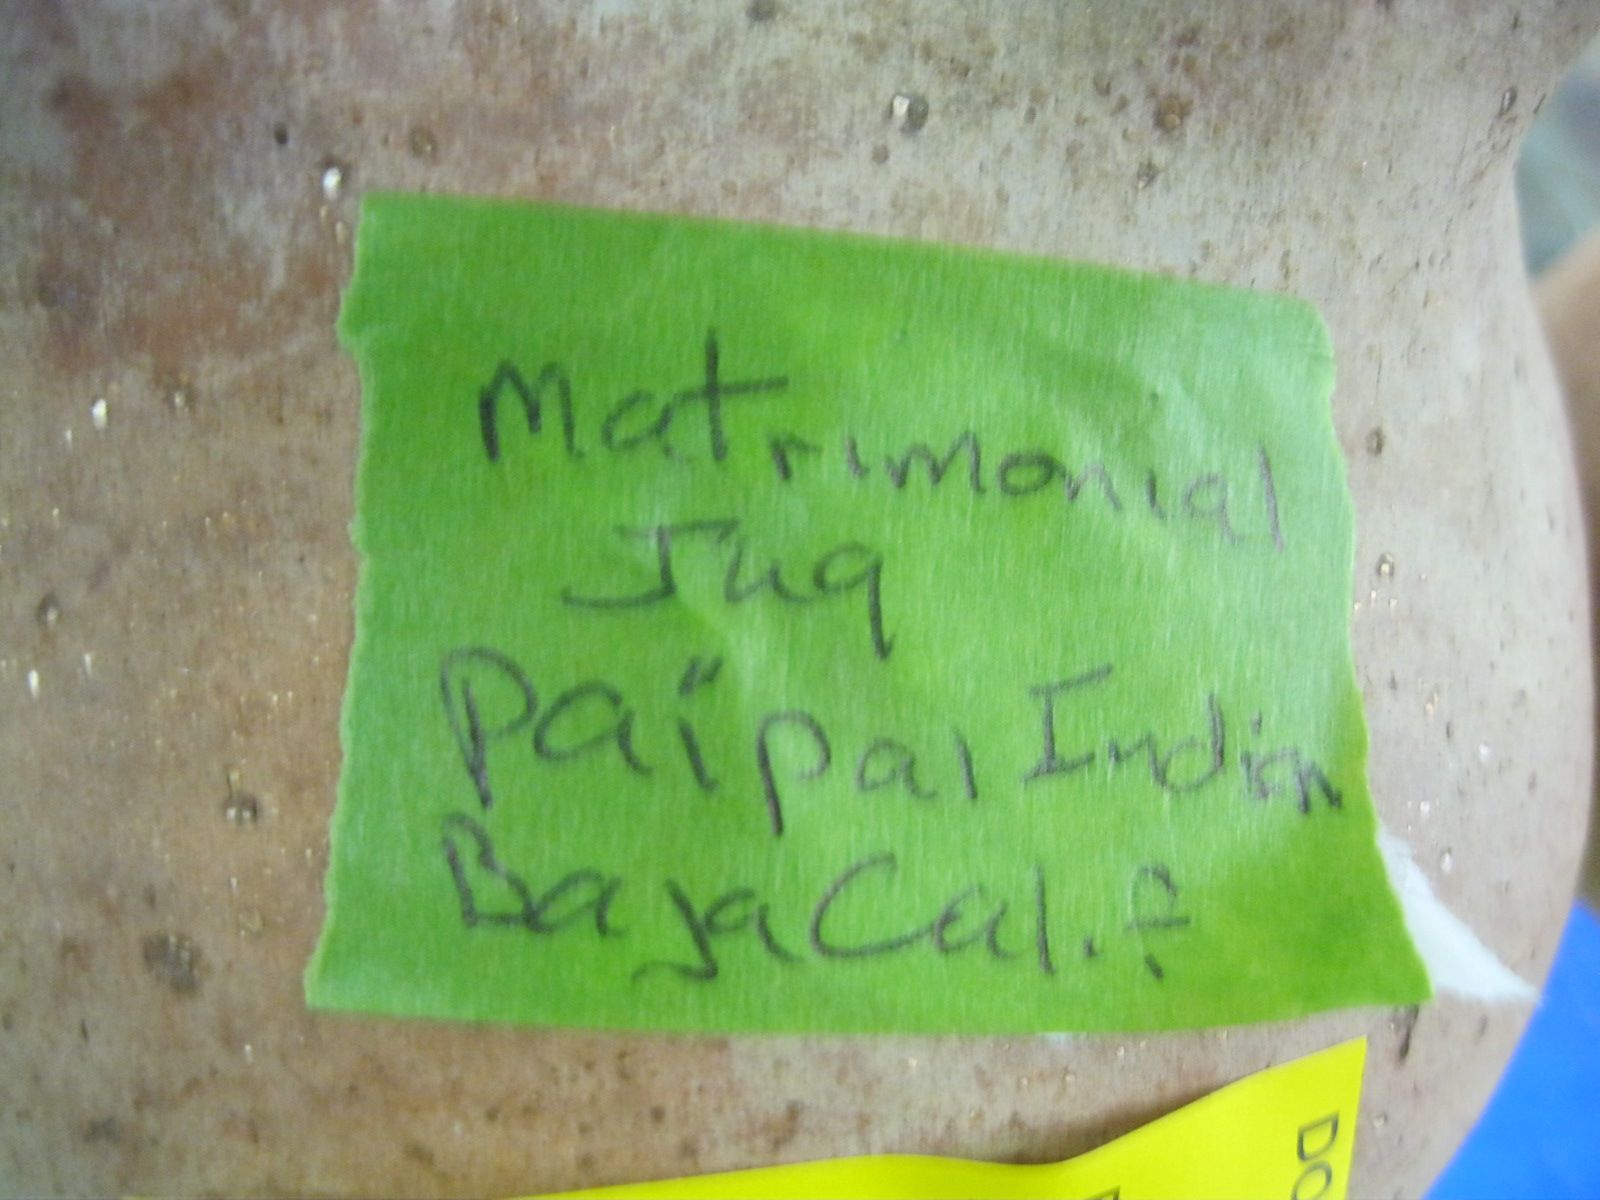 Matrimonial
Jug
Païpai Indian
Baja Cal.f
DO